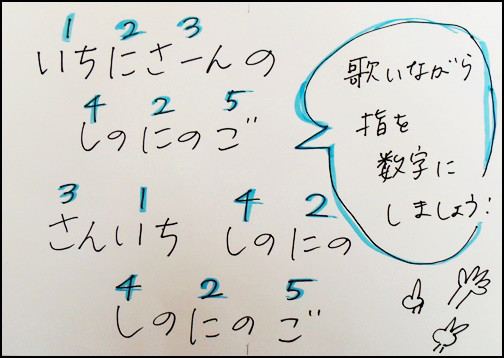 1 2 3
いちにさーんの
4 2 5
しのにのご
3 1 4 2
さんいち しのにの
4 2 5
しのにのご
歌いながら
指を
数字に
しましょう!